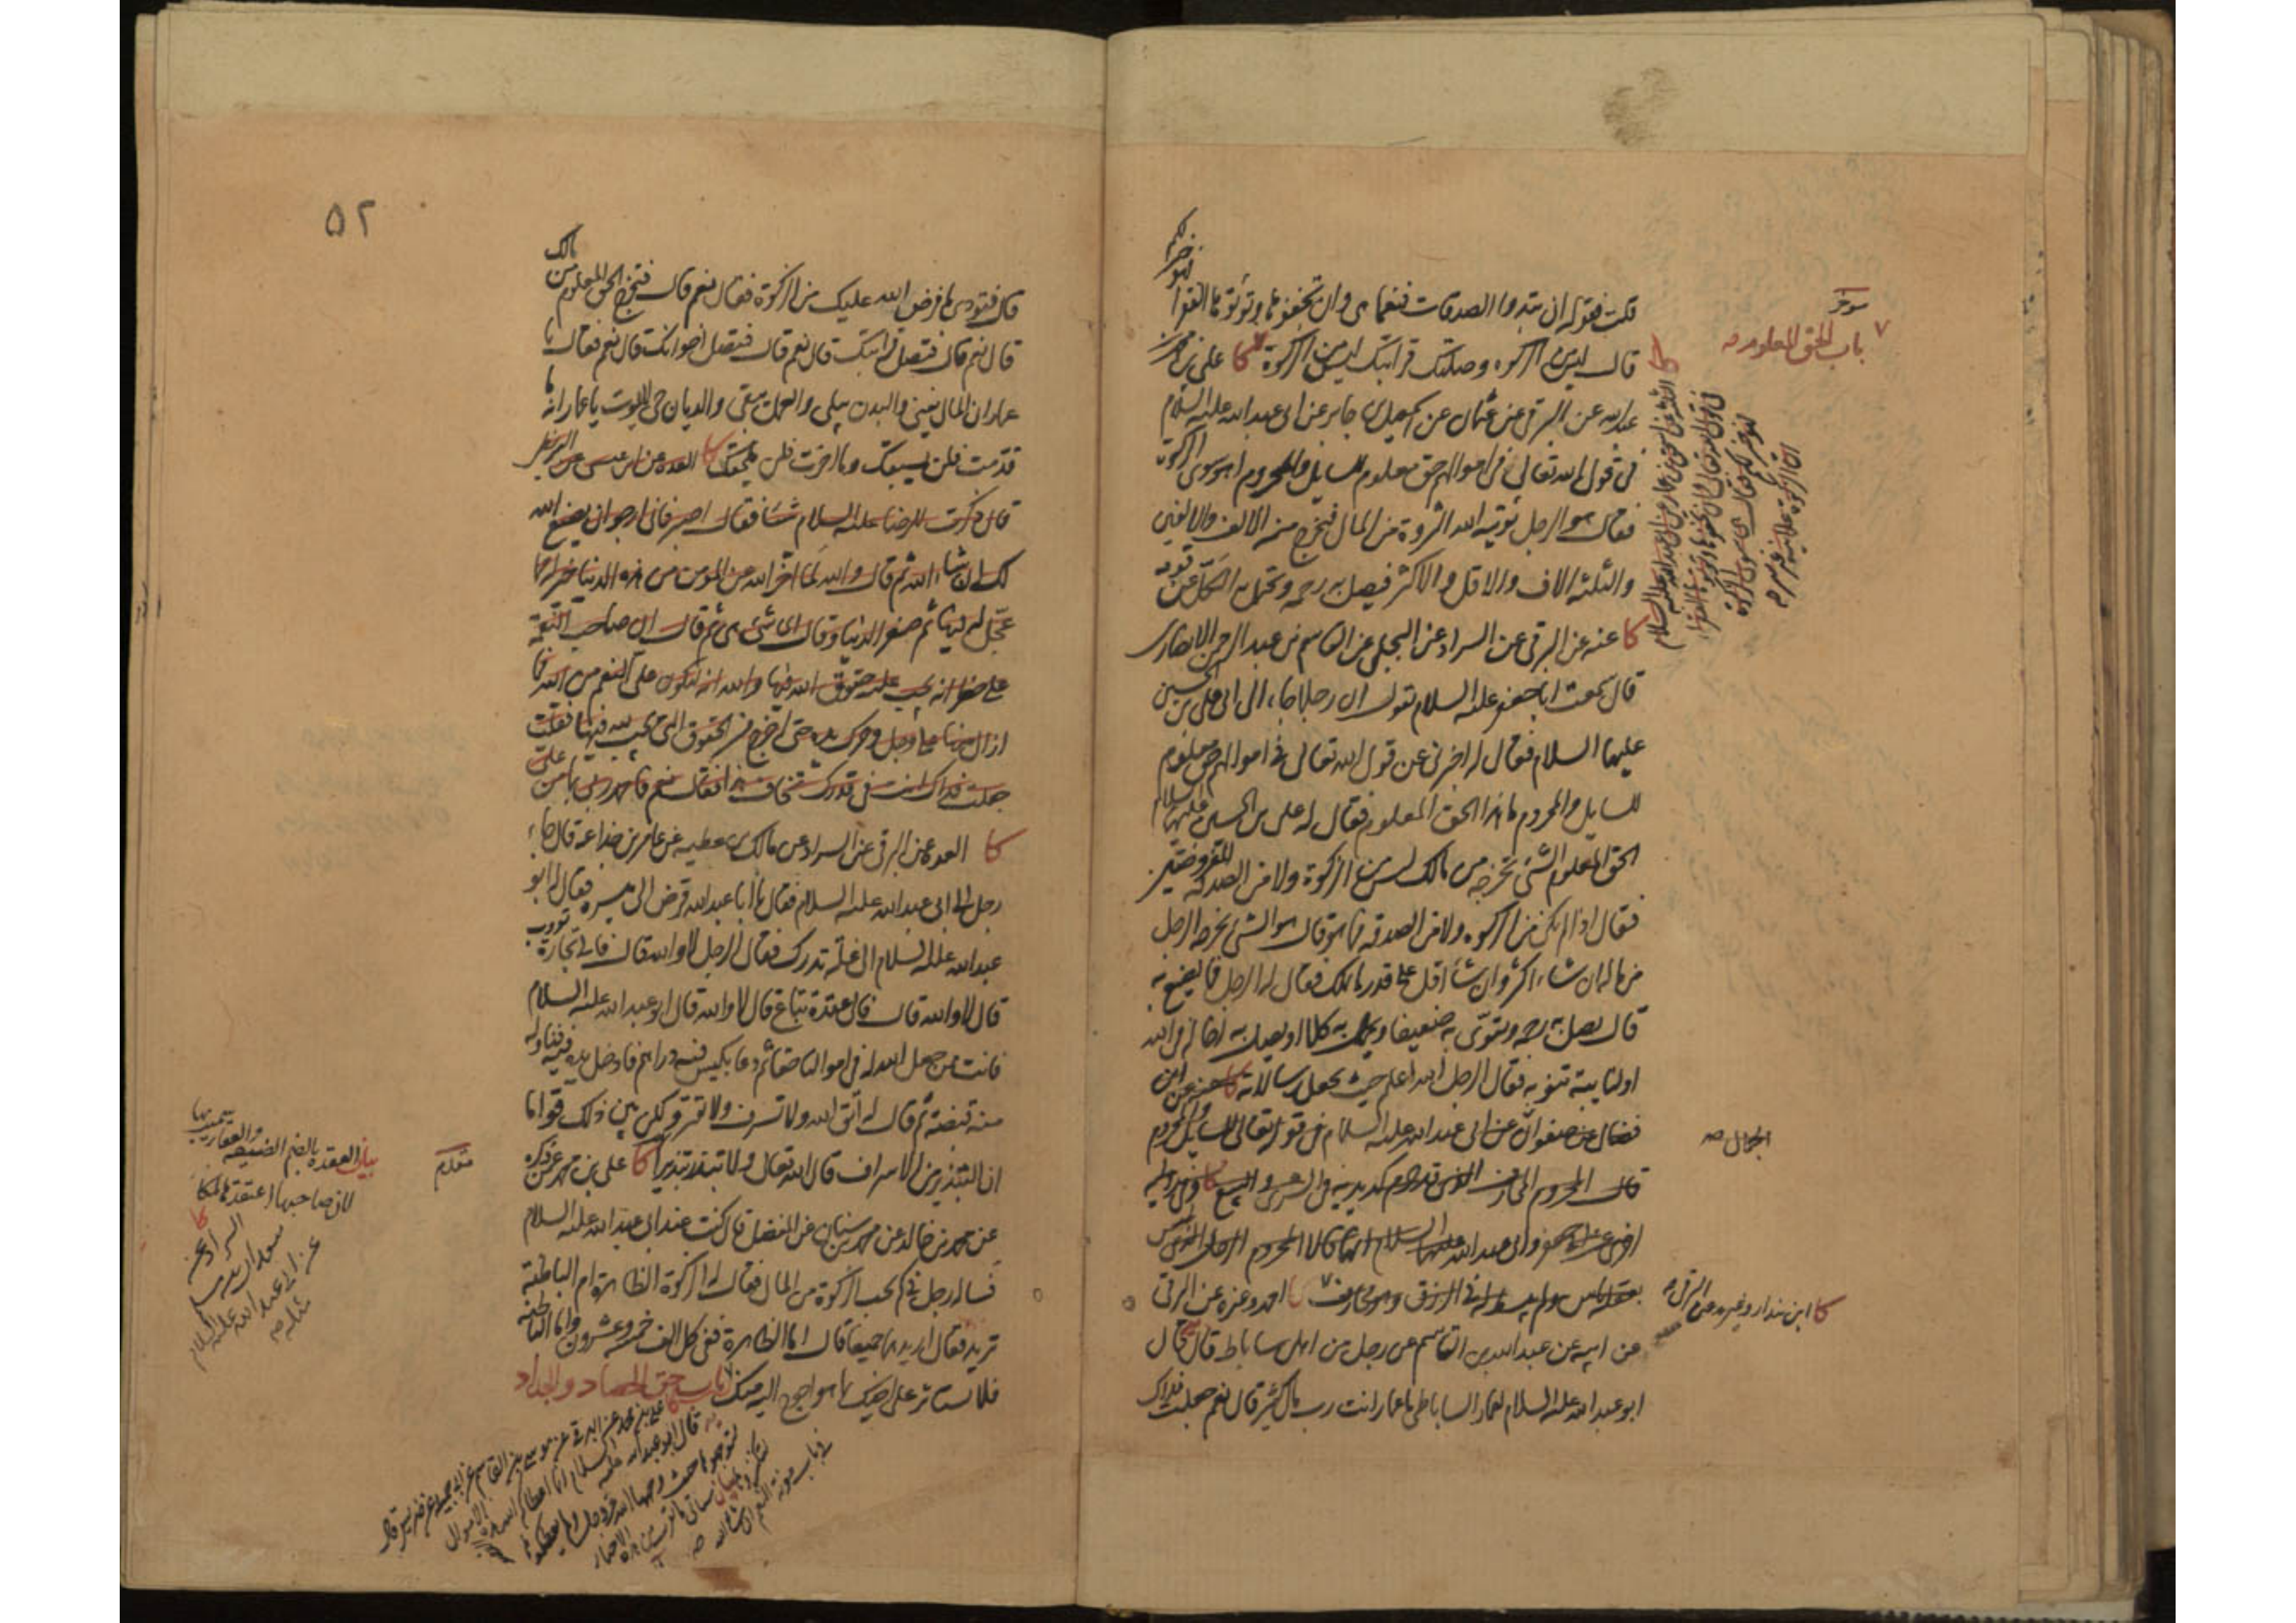 فهو خير لكم
قلت فقوله ان تبدوا الصدقات فنعما هي وان تخفوها وتؤتوها الفقرا
قال ليس من الزكوة وصلتك قرابتك ليس من الزكوة كا علي بن محمد بن
عبد الله عن البرقي عن عثمان عن اسمعيل بن جابر عن ابي عبد الله عليه السلام
في قول الله تعالى في اموالهم حق معلوم للسايل والمحروم اهو سوى الزكوة
فقال هو الرجل يؤتيه الله الثروة من المال فيخرج منه الالف والالفين
والثلثة الاف والاقل والاكثر فيصل به رحمه ويحمل به الكل عن قومه
كا عنه عن البرقي عن السراد عن البجلي عن القاسم بن عبد الرحمن الانصاري
قال سمعت ابا جعفر عليه السلام يقول ان رجلا جاء الى ابي علي بن الحسين
عليهما السلام فقال له اخبرني عن قول الله تعالى في اموالهم حق معلوم
للسايل والمحروم ما هذا الحق المعلوم فقال له علي بن الحسين عليهما السلام
الحق المعلوم الشئ تخرجه من مالك ليس من الزكوة ولا من الصدقة المفروضتين
فقال اذا لم يكن من الزكوة ولا من الصدقة فما هو قال هو الشئ يخرجه الرجل
من ماله ان شاء اكثر وان شاء اقل على قدر ما يملك فقال له الرجل فما يصنع به
قال يصل به رحمه ويقوي به ضعيفا ويحمل به كلا او يصل به اخا له في الله
او لنايبة تنوبه فقال الرجل الله اعلم حيث يجعل رسالاته كا عنه عن ابن
فضال عن صفوان عن ابي عبد الله عليه السلام في قوله تعالى للسايل والمحروم
قال المحروم المحارف الذي قد حرم كد يديه في الشرى والبيع كا وفي رواية
اخرى عن ابي جعفر وابي عبد الله عليهما السلام انهما قالا المحروم الرجل الذي ليس
بعقله باس ولم يبسط له في الرزق وهو محارف احمد وغيره عن البرقي
عن ابيه عن عبد الله بن القاسم عن رجل من اهل ساباط قال قال
ابو عبد الله عليه السلام لعمار الساباطي يا عمار انت رب مال كثير قال نعم جعلت فداك
مؤخر
باب الحق المعلوم
الجمال صه
كا ابن بندار وغيره عن البرقي
۵۲
قال فتؤدي ما فرض الله عليك من الزكوة فقال نعم قال فتخرج الحق المعلوم من مالك
قال نعم قال فتصل قرابتك قال نعم قال فتصل اخوانك قال نعم فقال يا
عمار ان المال يفنى والبدن يبلى والعمل يبقى والديان حي لا يموت يا عمار انه ما
قدمت فلن يسبقك وما اخرت فلن يلحقك كا العدة عن ابن عيسى عن البزنطي
قال ذكرت للرضا عليه السلام شيئا فقال اصبر فاني ارجو ان يصنع الله
لك ان شاء الله ثم قال والله لما اخر الله عن المؤمن من هذه الدنيا خير له مما
عجل له فيها ثم صغر الدنيا وقال اي شئ هي ثم قال ان صاحب النعمة
على خطر انه يجب عليه حقوق الله فيها والله انه لتكون على النعم من الله فما
ازال منها على وجل وحرك يده حتى اخرج من الحقوق التي تجب لله فيها فقلت
جعلت فداك انت في قدرك تخاف هذا فقال نعم فاحمد ربي على ما من علي
كا العدة عن البرقي عن السراد عن مالك بن عطية عن عامر بن جذاعة قال جاء
رجل الى ابي عبد الله عليه السلام فقال يا ابا عبد الله قرض الى ميسرة فقال له ابو
عبد الله عليه السلام الى غلة تدرك فقال الرجل لا والله قال فالى تجارة تؤوب
قال لا والله قال فالى عقدة تباع قال لا والله قال ابو عبد الله عليه السلام
فانت ممن جعل الله له في اموالنا حقا ثم دعا بكيس فيه دراهم فادخل يده فيه فناوله
منه قبضة ثم قال له اتق الله ولا تسرف ولا تقتر ولكن بين ذلك قواما
ان التبذير من الاسراف قال الله تعالى ولا تبذر تبذيرا كا علي بن محمد عمن ذكره
عن محمد بن خالد عن محمد بن سنان عن المفضل قال كنت عند ابي عبد الله عليه السلام
فساله رجل في كم تجب الزكوة من المال فقال له الزكوة الظاهرة ام الباطنة
تريد فقال اريدهما جميعا قال اما الظاهرة ففي كل الف خمسة وعشرون واما الباطنة
فلا تستاثر على اخيك بما هو احوج اليه منك باب حق الحصاد والجداد
مقدم
بيان العقدة بالضم الضيعة والعقار سميت بها
لان صاحبها اعتقدها ملكا
كا
السراد عن
سعدان
عن ابي عبد الله عليه السلام
مثله صه